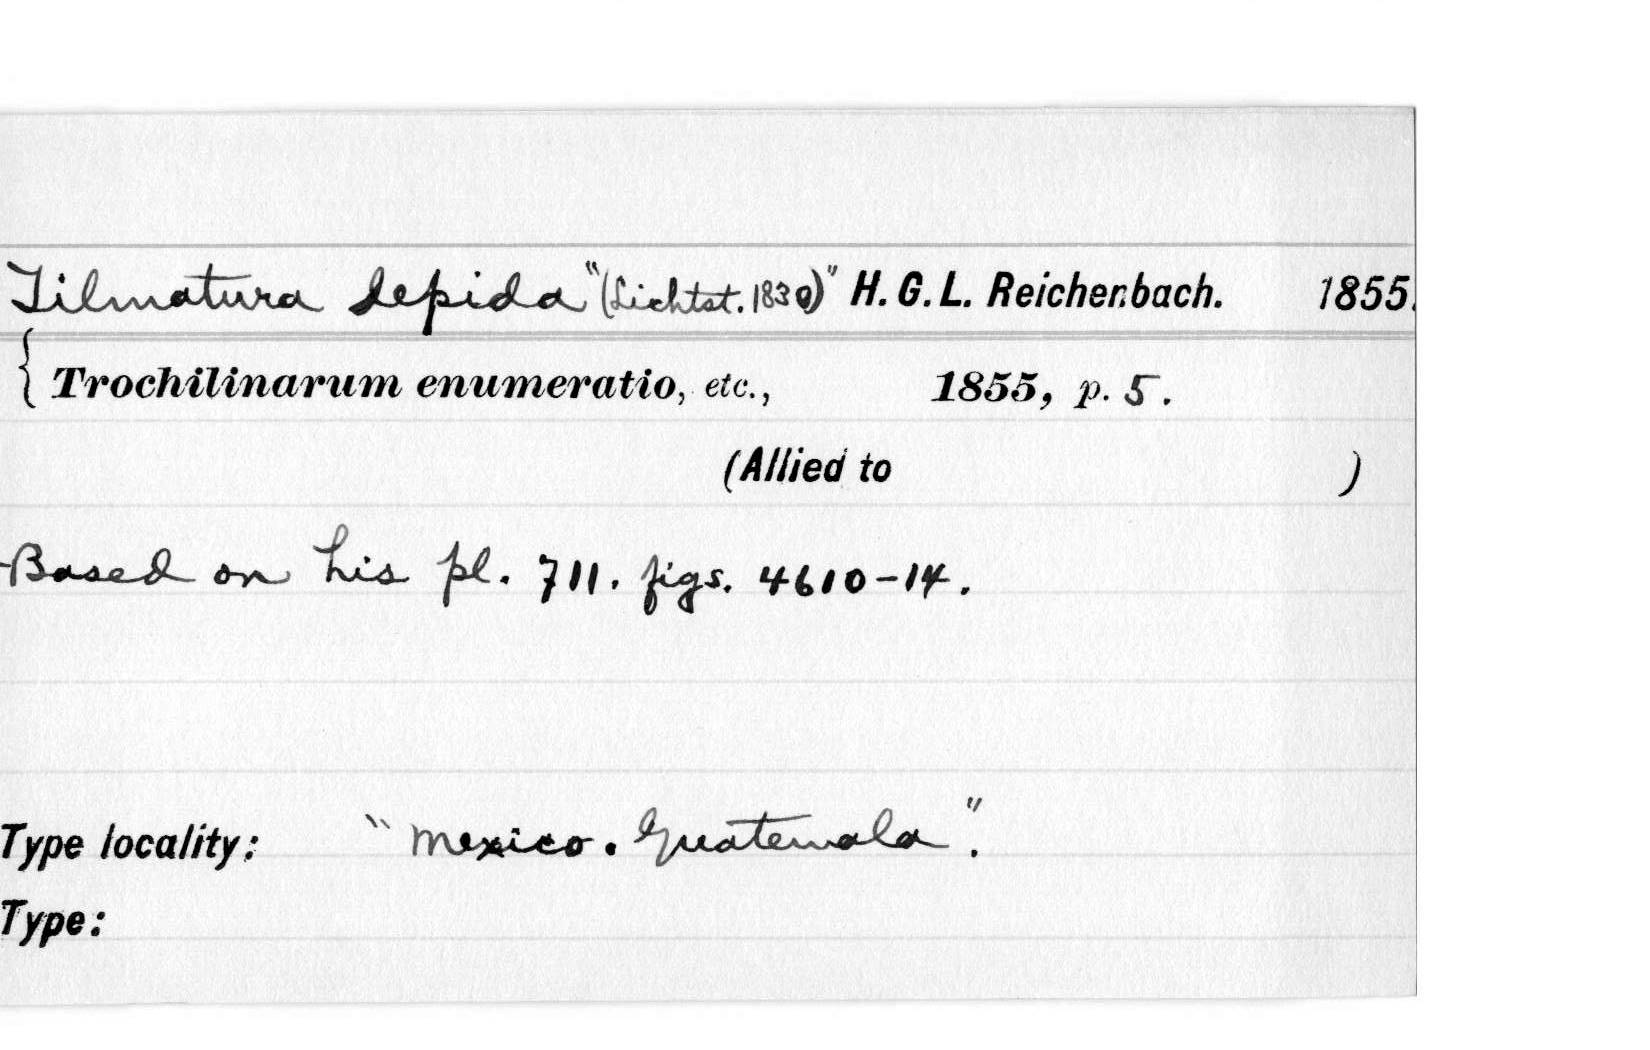 Tilmatura lepida "(Lichtst. 1830)" H. G. L. Reichenbach. 1855.
{ Trochilinarum enumeratio, etc., 1855, p. 5.
(Allied to )
Based on his pl. 711. figs. 4610-14.
Type locality: "Mexico. Guatemala".
Type: